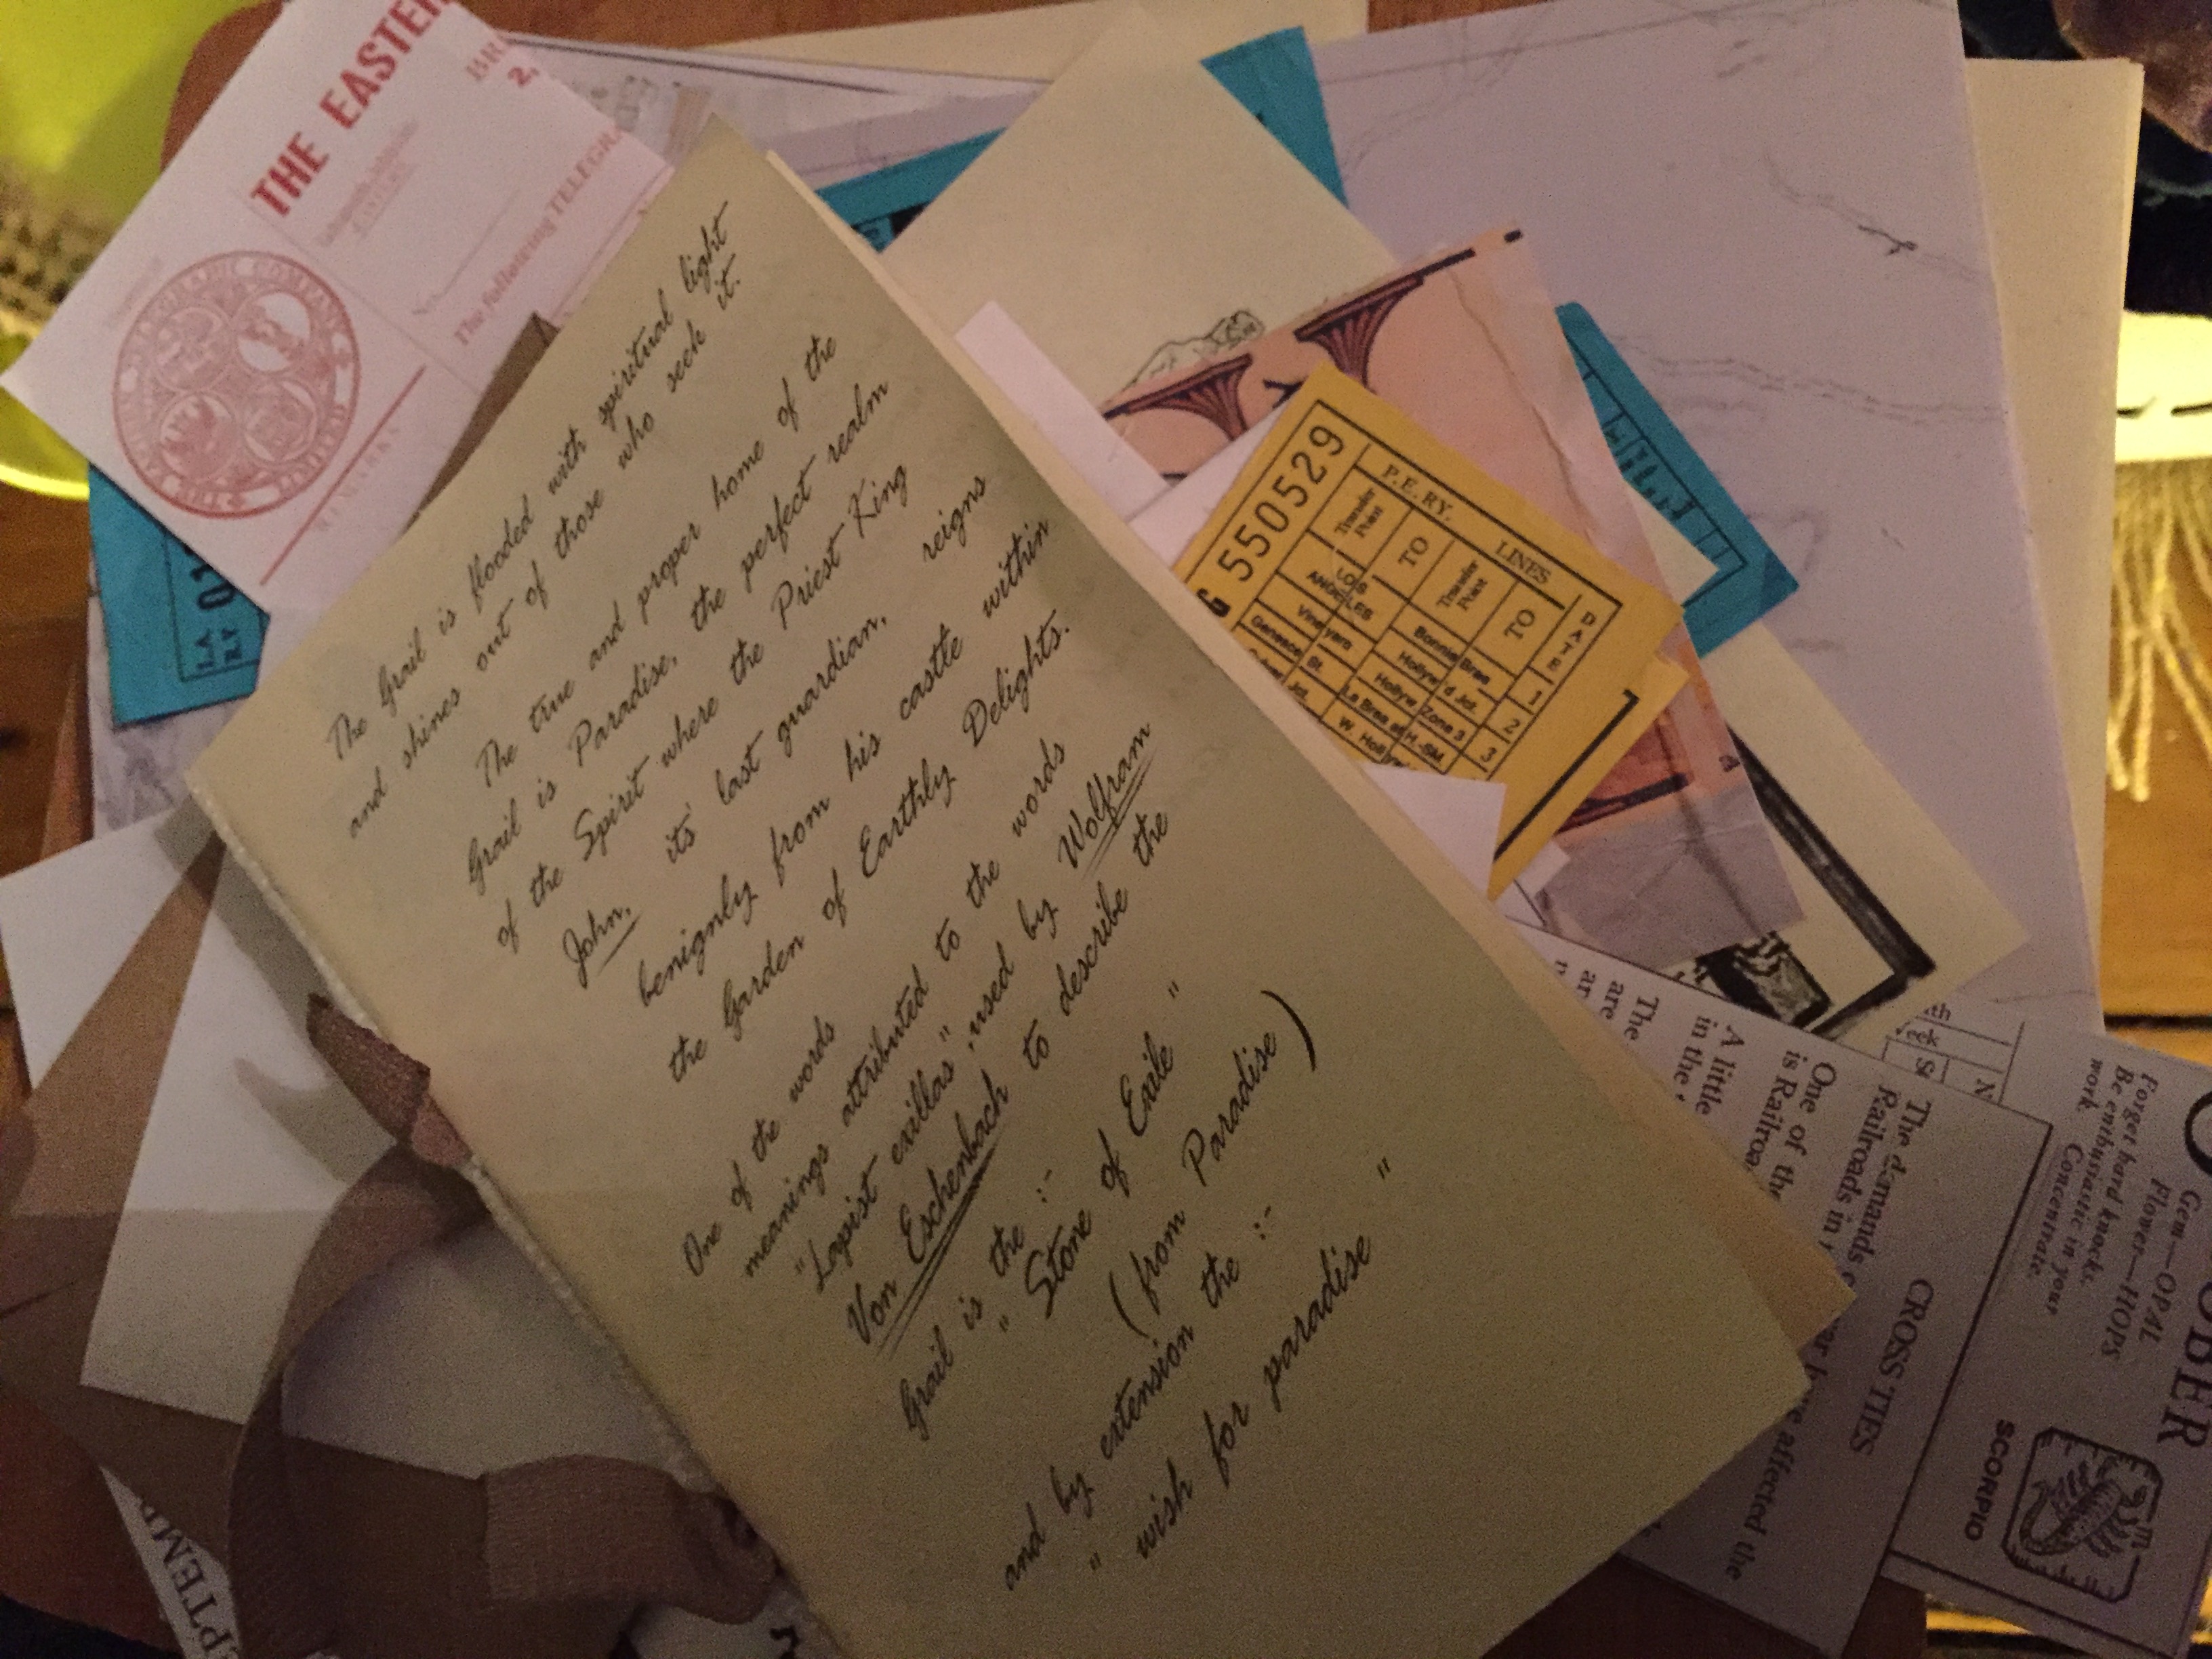 The Grail is flooded with spiritual light
and shines out of those who seek it.
The true and proper home of the
Grail is Paradise, the perfect realm
of the Spirit where the Priest King
John, its' last guardian, reigns
benignly from his castle within
the Garden of Earthly Delights.
One of the words words
meanings attributed to the
"Lapist exillas", used by Wolfram
Von Eschenbach to describe the
Grail is the :-
" Stone of Exile "
(from Paradise)
and by extension the :-
" wish for paradise "
THE EASTER
2,
The following TELEGRA
REMARKS
LA
RY
01
G 550529
P. E. RY. LINES
Transfer Point
TO
Transfer Point
TO
DATE
LOS ANGELES
Vineyard
Genesee St.
Jct.
Bonnie Brea
Hollyw'd Jct.
Hollyw. Zone 3
La Brea at H.-SM
W. Holl
1
2
3
The
are
A little
in the
One of the
is Railroa
The demands
Railroads in
affected the
CROSS TIES
OBER
Gem—OPAL
Flower—HOPS
Forget hard knocks.
Be enthusiastic in your
work. Concentrate.
SCORPIO
PTEM